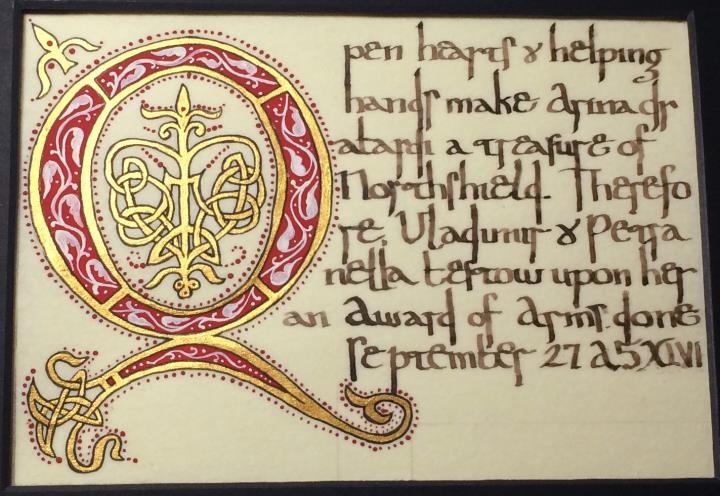 Open hearts & helping
hands make
a treasure of
Northshield. Therefo
re, Vladimir & Petra
nella bestow upon her
an Award of Arms. done
September 27 AS XLVI